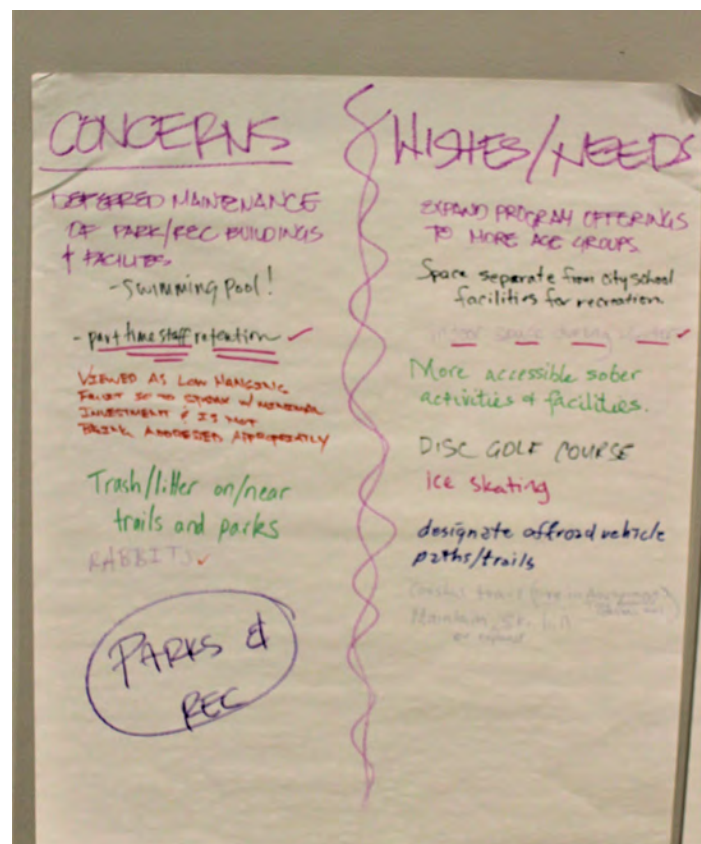 CONCERNS
DEFERRED MAINTENANCE
OF PARK/REC BUILDINGS
+ FACILITIES
- Swimming Pool!
- part time staff retention ✓
VIEWED AS LOW HANGING
FRUIT SO TO SPEAK W/ MINIMAL
INVESTMENT & IS NOT
BEING ADDRESSED APPROPRIATLY
Trash/litter on/near
trails and parks
RABBITS ✓
PARKS &
REC
WISHES/NEEDS
EXPAND PROGRAM OFFERINGS
TO MORE AGE GROUPS
Space separate from city school
facilities for recreation
space during winter ✓
More accessible sober
activities & facilities.
DISC GOLF COURSE
ice skating
designate offroad vehicle
paths/trails
Coastal trail
Maintain
or expand